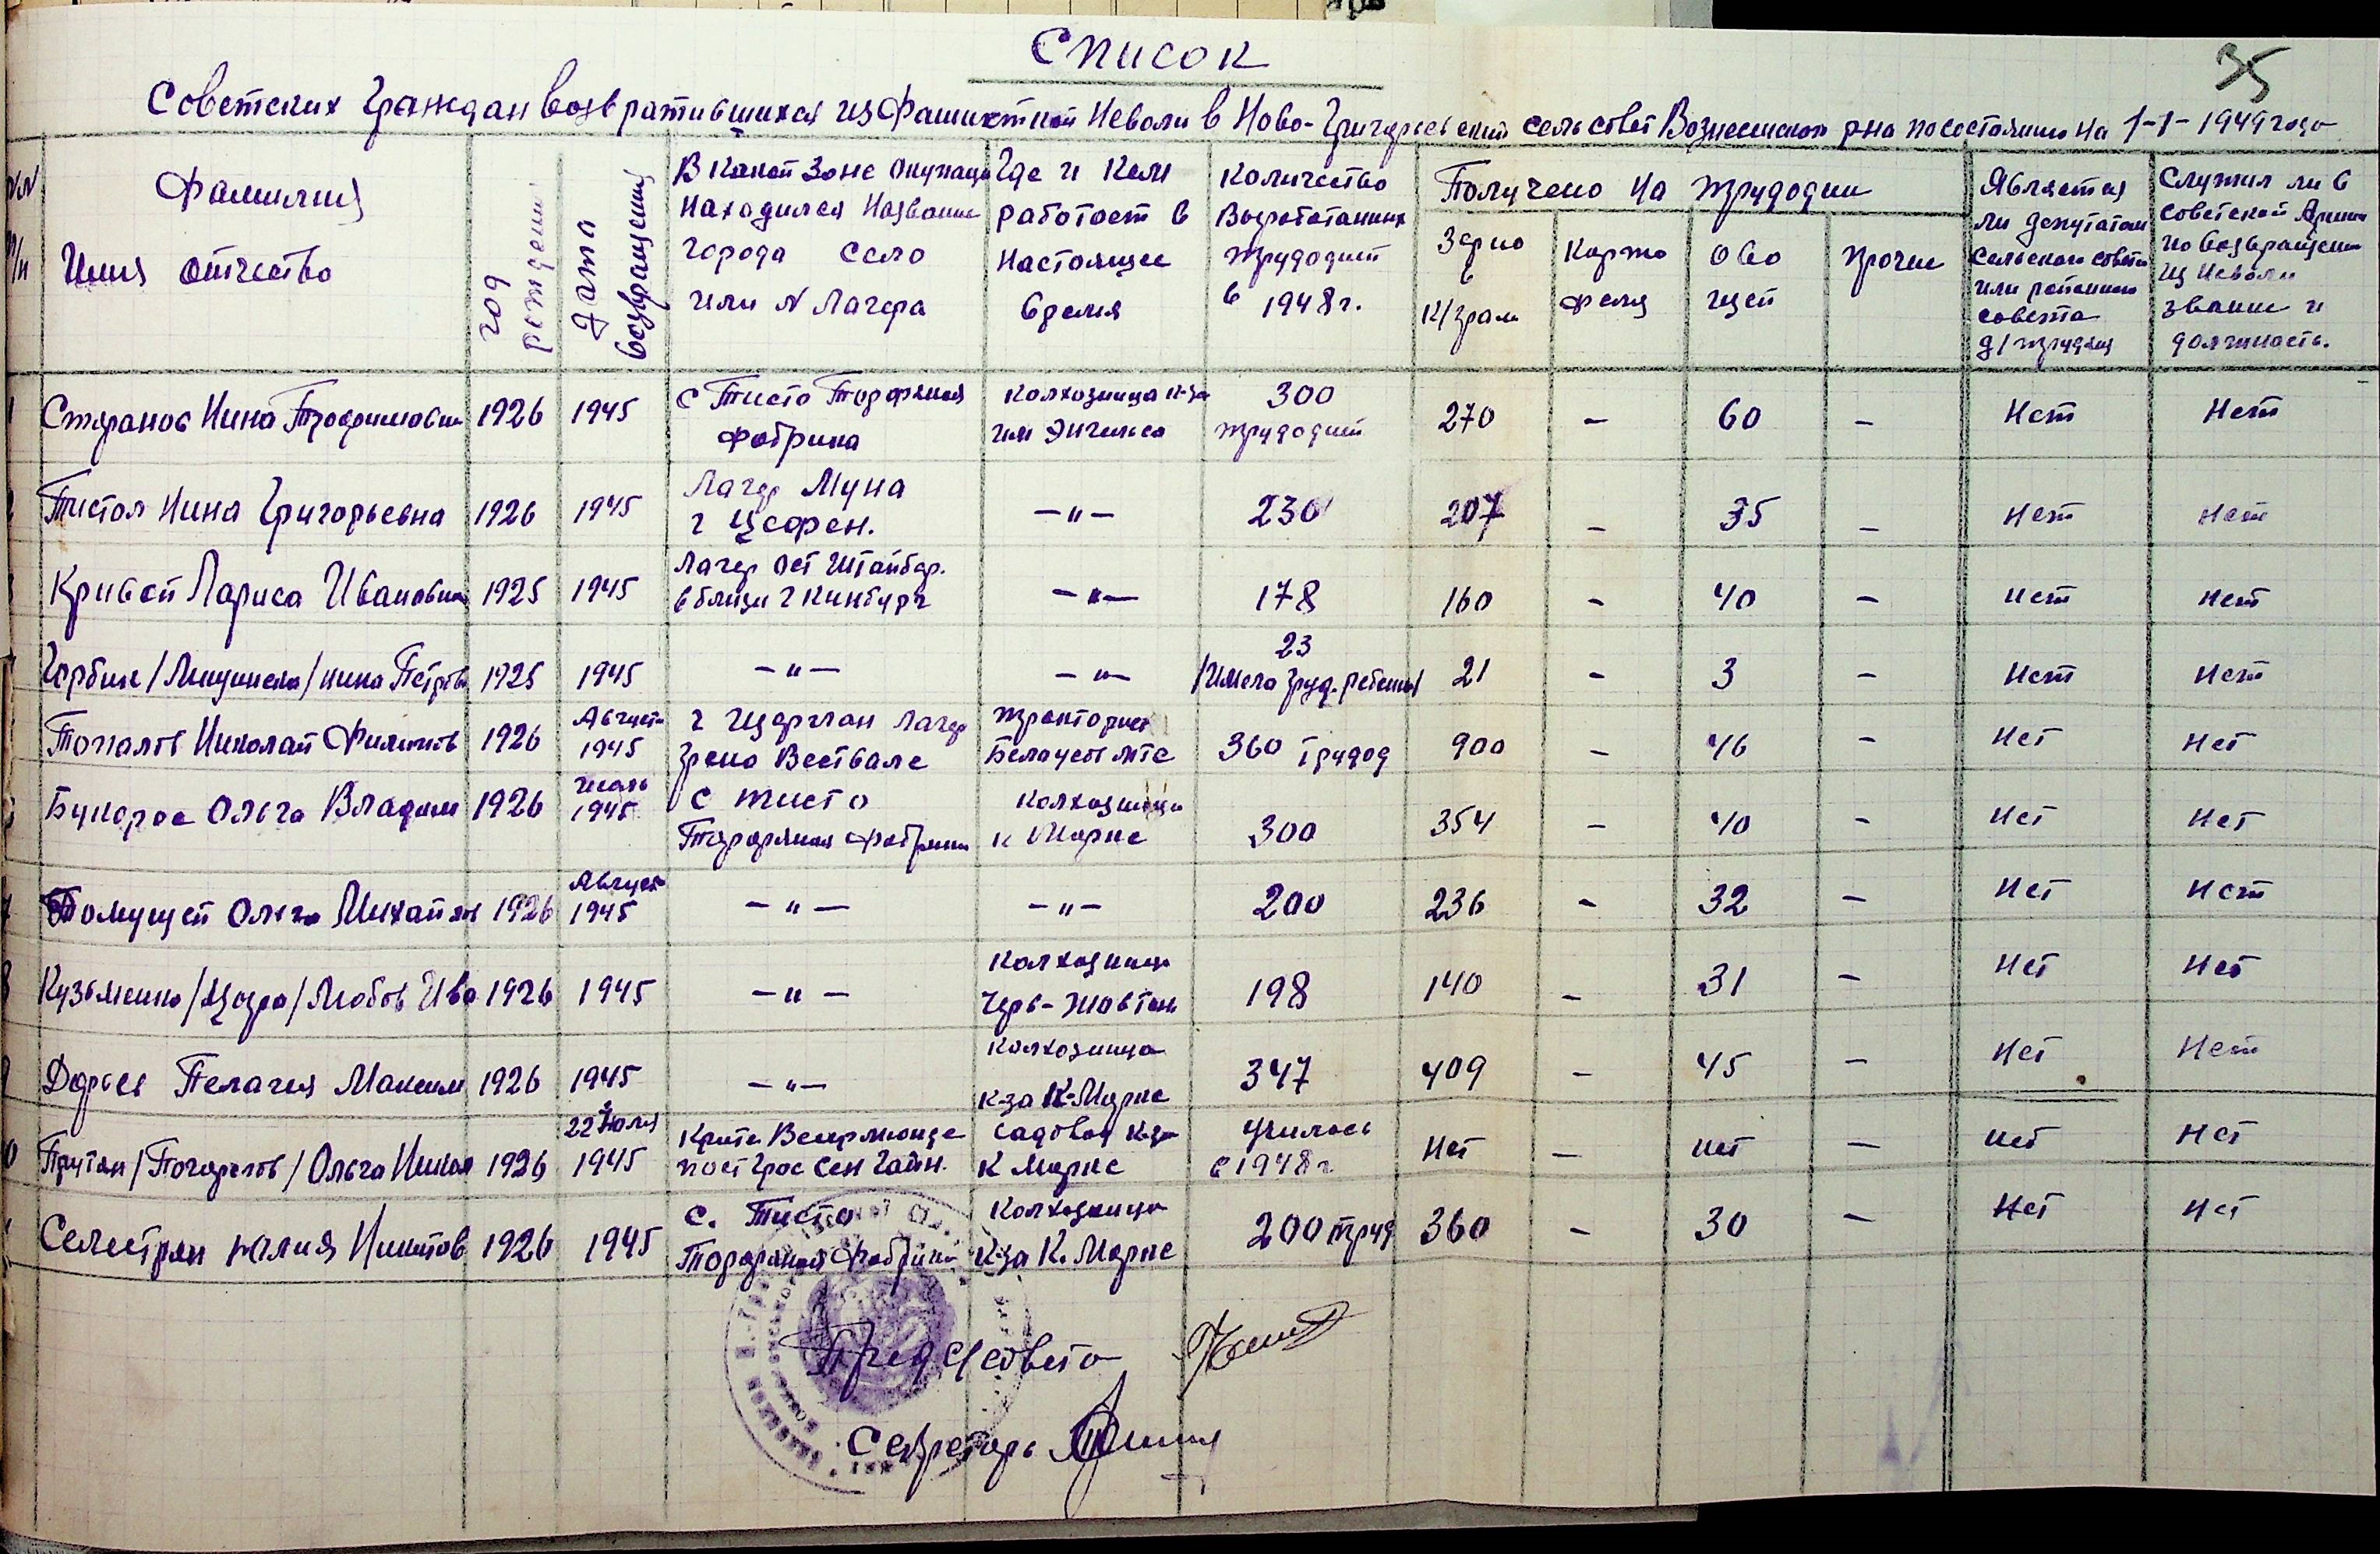 Список
35
Советских Граждан возвратившихся из Фашистской Неволи в Ново-Григорьевский сельсовет Вознесенского р-на по состоянию на 1-1-1949 года
№№ п/п
Фамилия
Имя отчество
год рождения
Дата возвращения
В какой зоне оккупации
находился Название
города село
или № Лагеря
Где и кем
работает в
настоящее
время
Количество
выработанных
трудодней
в 1948 г.
Получено на трудодни
Зерно
в
к/грам
Карто
феля
Ово
щей
Прочие
Является
ли депутатом
сельского совета
или районного
совета
д/трудящ
Служил ли в
советской Армии
по возвращении
из неволи
звание и
должность.
Нина 1926 1945 с Тисто Торфяная фабрика Колхозница к-за им Энгельса 300 трудодней 270 - 60 - Нет Нет
Пистол Нина Григорьевна 1926 1945 Лагер Муна г Цефен. -"- 230 207 - 35 - нет нет
Кривой Лариса Ивановна 1925 1945 Лагер Ост Штайбер. вблизи г -"- 178 160 - 40 - нет нет
Нина Петров 1925 1945 -"- -"- 23 /Имела груд. ребенка/ 21 - 3 - Нет Нет
Топалов Николай 1926 Август 1945 г Лагер Вествале тракторист МТС 360 трудод 900 - 46 - Нет Нет
Ольга Владим 1926 1945 с тисто Торфяная фабрика колхозница к Маркс 300 354 - 40 - Нет Нет
Ольга Михайл 1926 Август 1945 -"- -"- 200 236 - 32 - Нет Нет
Кузьменко / / Любов Ива 1926 1945 -"- Колхозница Черв-Жовтень 198 140 - 31 - Нет Нет
Пелагея Максим 1926 1945 -"- Колхозница к-за К-Маркс 347 409 - 45 - Нет Нет
Ольга Никол 1926 22 Июля 1945 садовод к-за К Маркс училась в 1948 г Нет - нет - нет нет
Селестрян Юлия Никитов 1926 1945 с. Тисто Торфяная фабрика Колхозница К-за К. Маркс 200 труд 360 - 30 - Нет нет
Пред с/совета
Секретарь